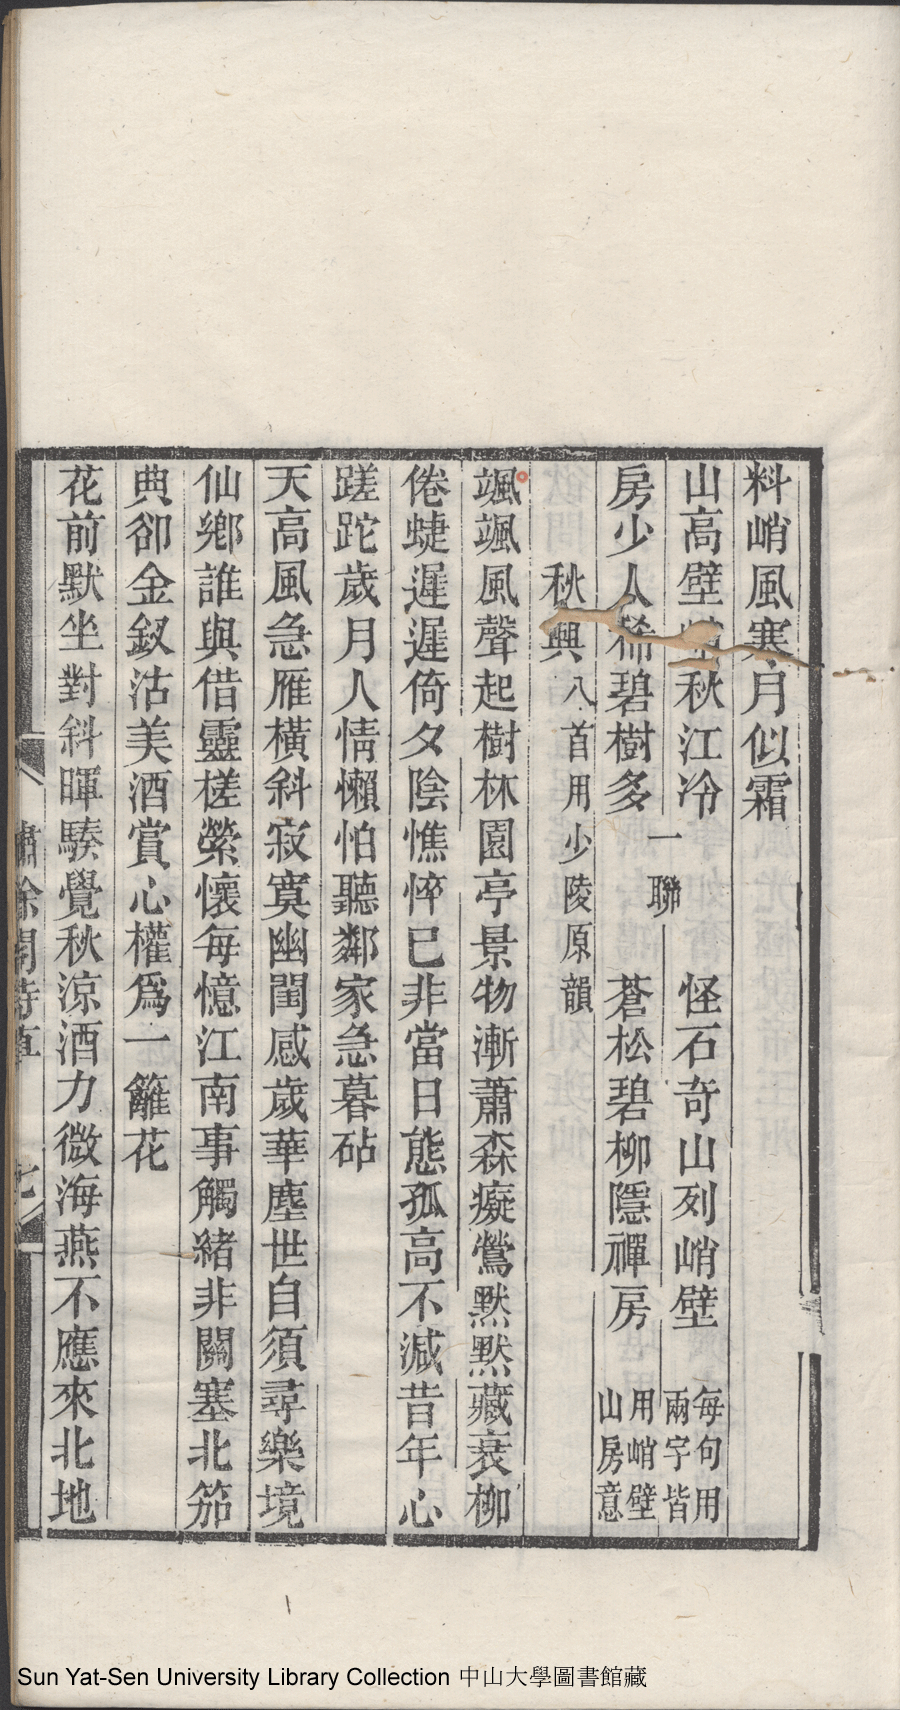 料峭風寒月似霜
山高壁峭秋江冷　怪石奇山列峭壁　每句用兩字皆
房少人稀碧樹多　一聯　蒼松碧柳隱禪房　用峭壁山房意
秋興　八首用少陵原韻
颯颯風聲起樹林園亭景物漸蕭森癡鶯默默藏衰柳
倦蜨遲遲倚夕陰憔悴已非當日態孤高不減昔年心
蹉跎歲月人情懶怕聽鄰家急暮砧
天高風急雁橫斜寂寞幽閨感歲華塵世自須尋樂境
仙鄉誰與借靈槎縈懷每憶江南事觸緒非關塞北笳
典卻金釵沽美酒賞心權爲一籬花
花前默坐對斜暉驟覺秋涼酒力微海燕不應來北地
繡餘閣詩草
七
Sun Yat-Sen University Library Collection 中山大學圖書館藏